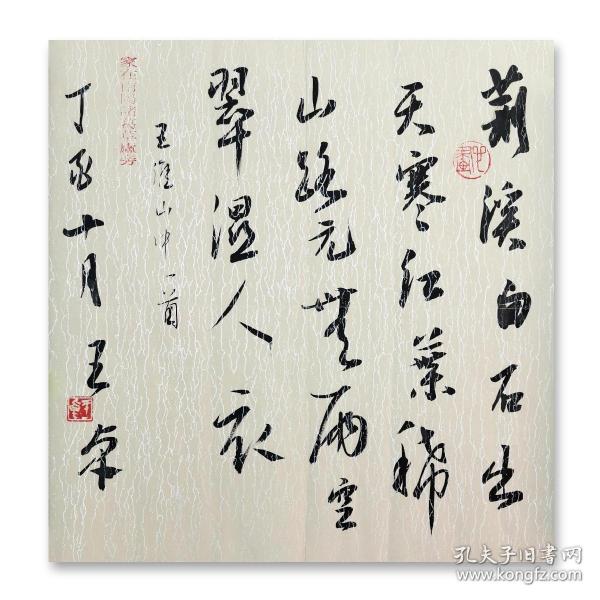 荊溪白石出
天寒红葉稀
山路元無雨空
翠湿人衣
王维山中一首
丁亥十月王卓
孔夫子旧书网
www.kongfz.com